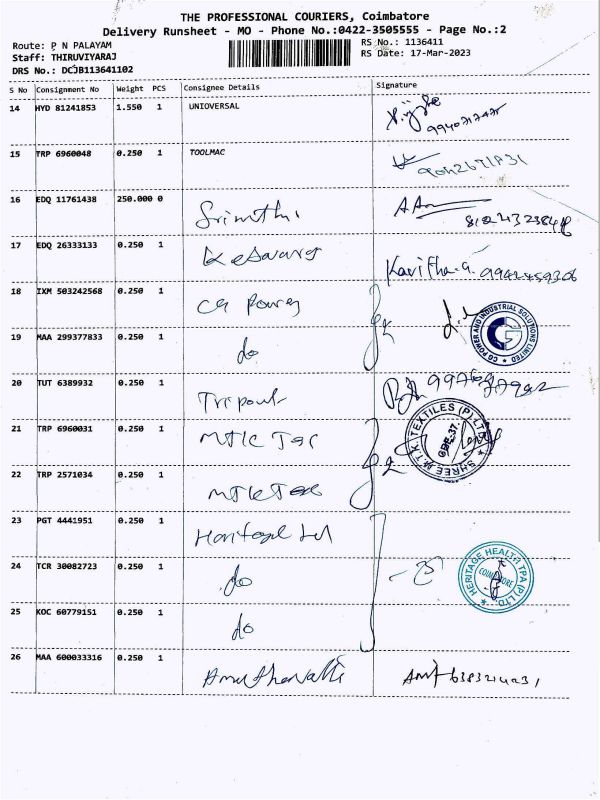 THE PROFESSIONAL COURIERS, Coimbatore
Delivery Runsheet - MO - Phone No.:0422-3505555 - Page No.:2
Route: P N PALAYAM
RS No.: 1136411
Staff: THIRUVIYARAJ
RS Date: 17-Mar-2023
DRS No.: DCJB113641102
S No Consignment No Weight PCS Consignee Details Signature
14 HYD 81241853 1.550 1 UNIOVERSAL
15 TRP 6960048 0.250 1 TOOLMAC
16 EDQ 11761438 250.000 0
17 EDQ 26333133 0.250 1 Kavitha.G.
18 IXM 503242568 0.250 1 CG Power
CG POWER AND INDUSTRIAL SOLUTIONS LIMITED
19 MAA 299377833 0.250 1 do
20 TUT 6389932 0.250 1
21 TRP 6960031 0.250 1 MTK Tex
SHREE M.T.K. TEXTILES (P) LTD.
22 TRP 2571034 0.250 1 MTK Tex
23 PGT 4441951 0.250 1
24 TCR 30082723 0.250 1 do
HERITAGE HEALTH TPA (P) LTD.
COIMBATORE
25 KOC 60779151 0.250 1 do
26 MAA 600033316 0.250 1 Amuthavalli